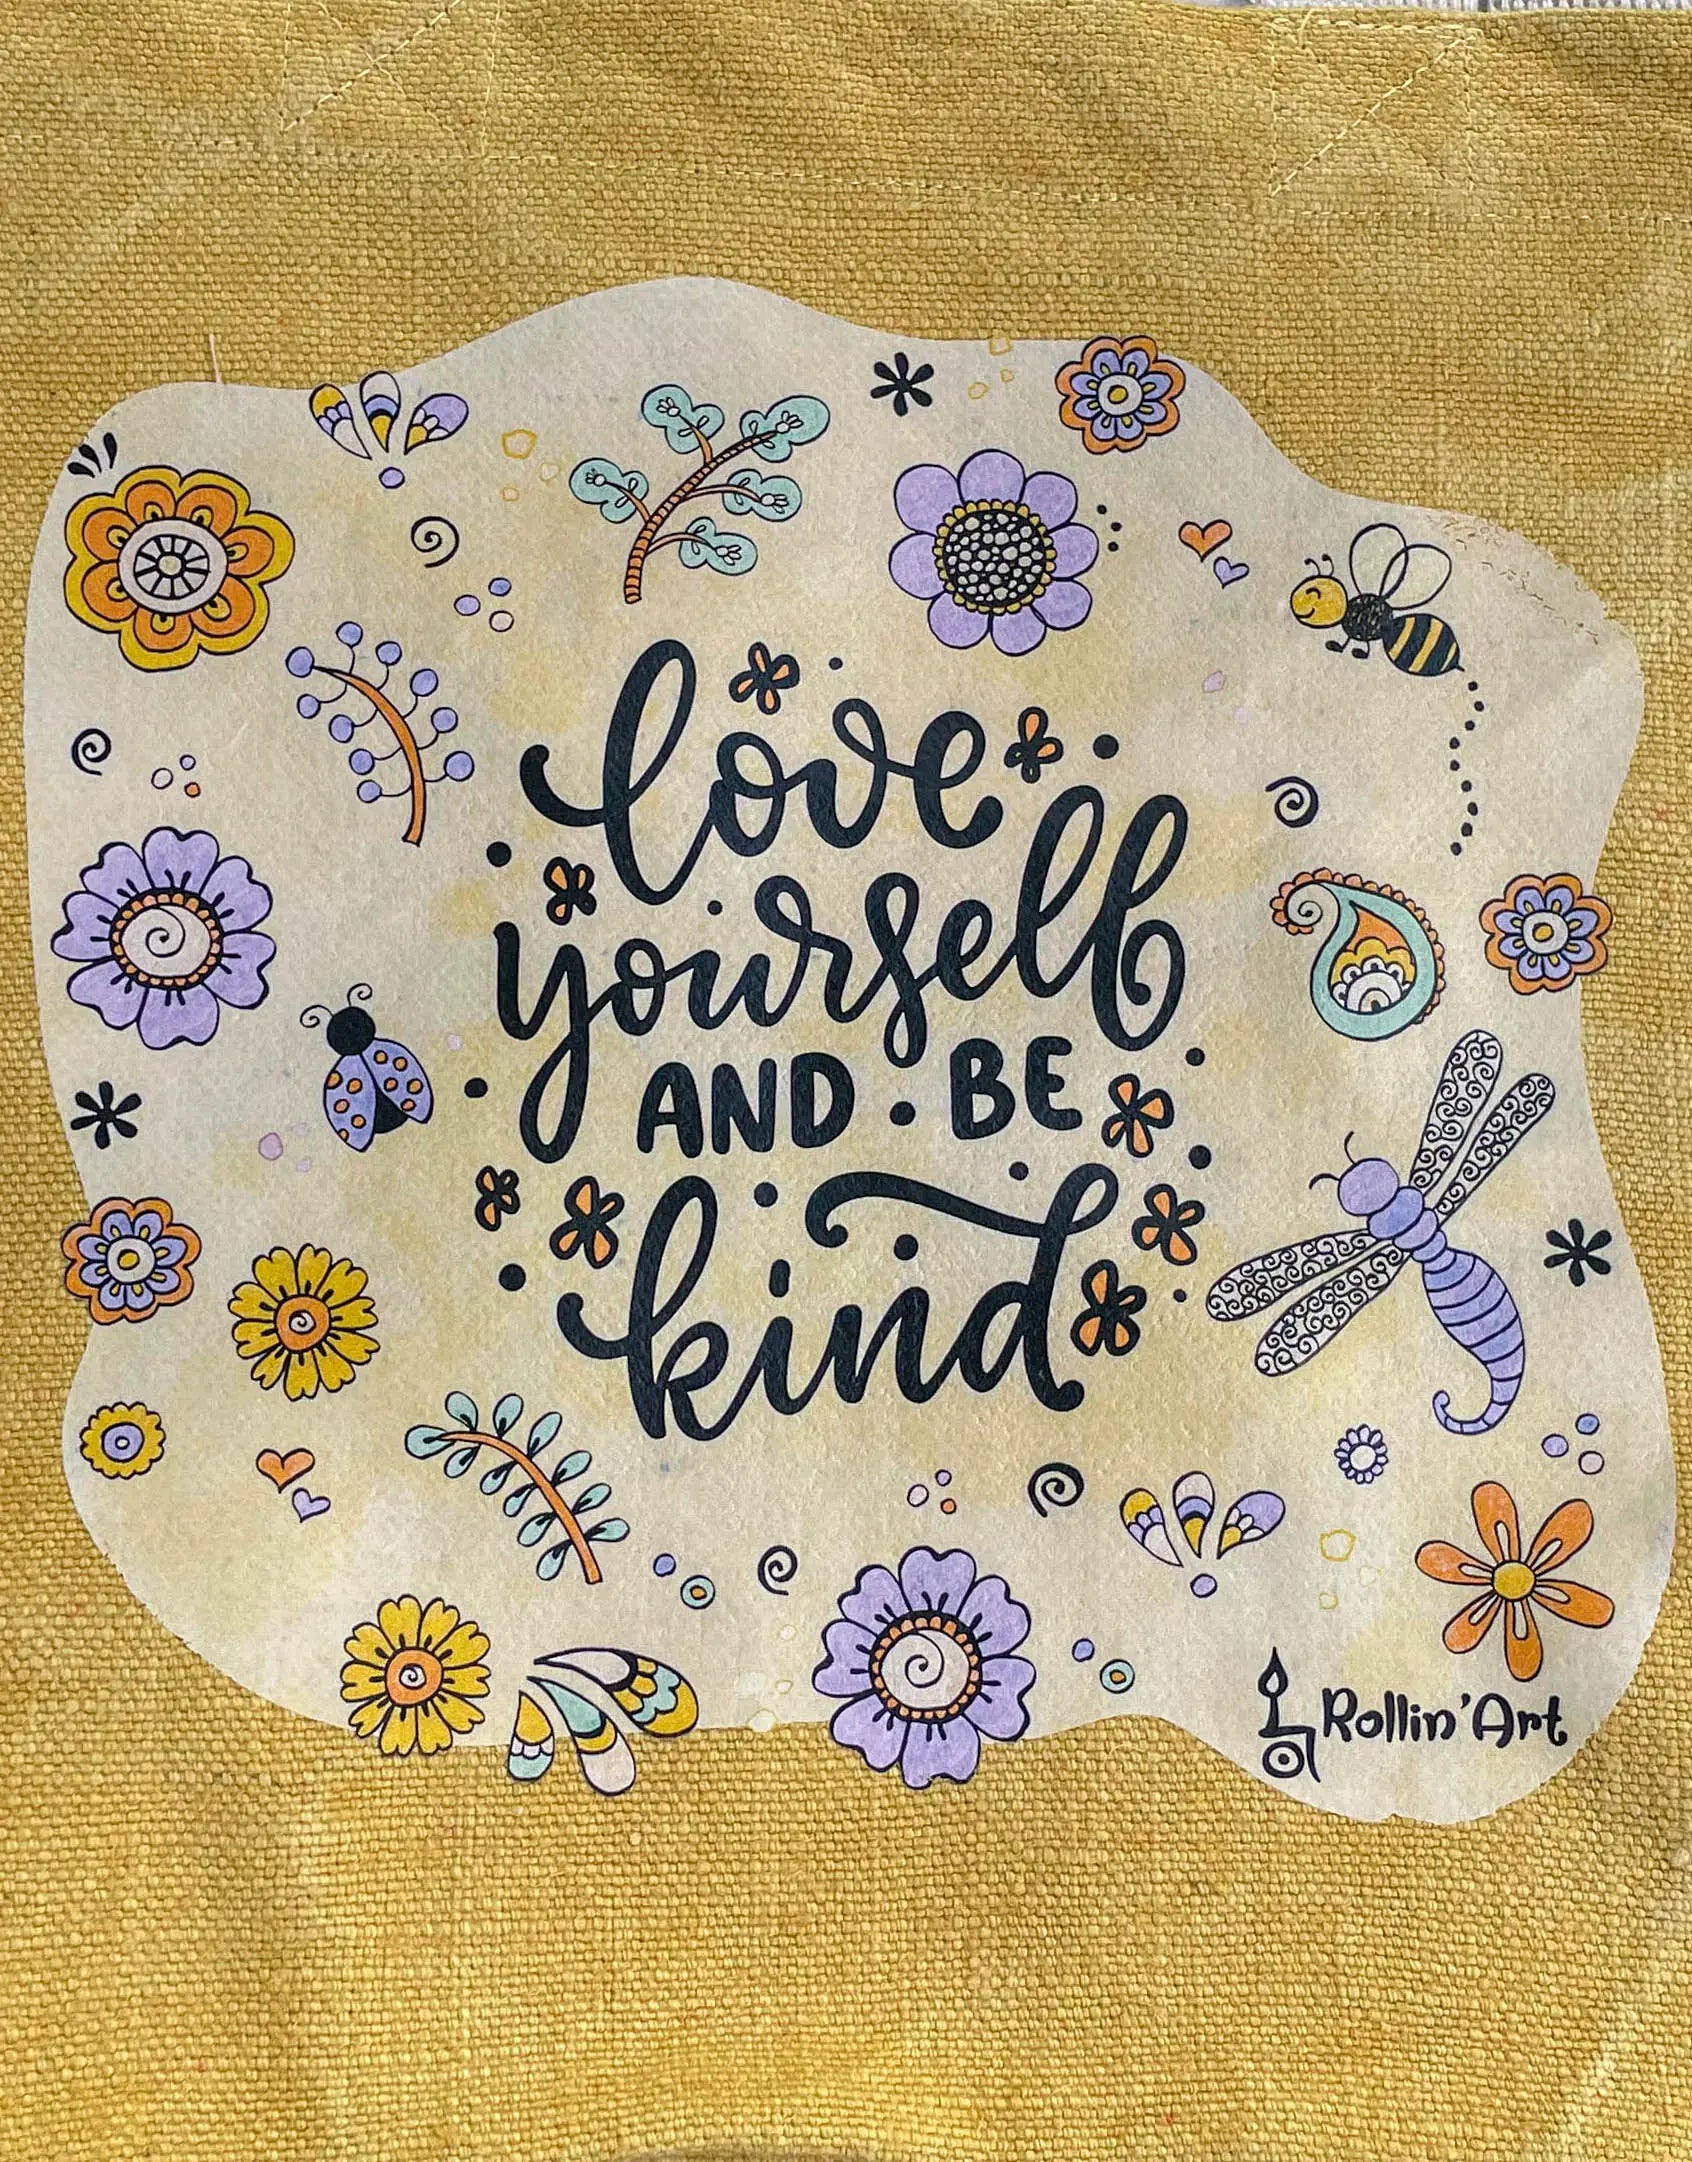 love
yourself
AND • BE
kind
Rollin' Art